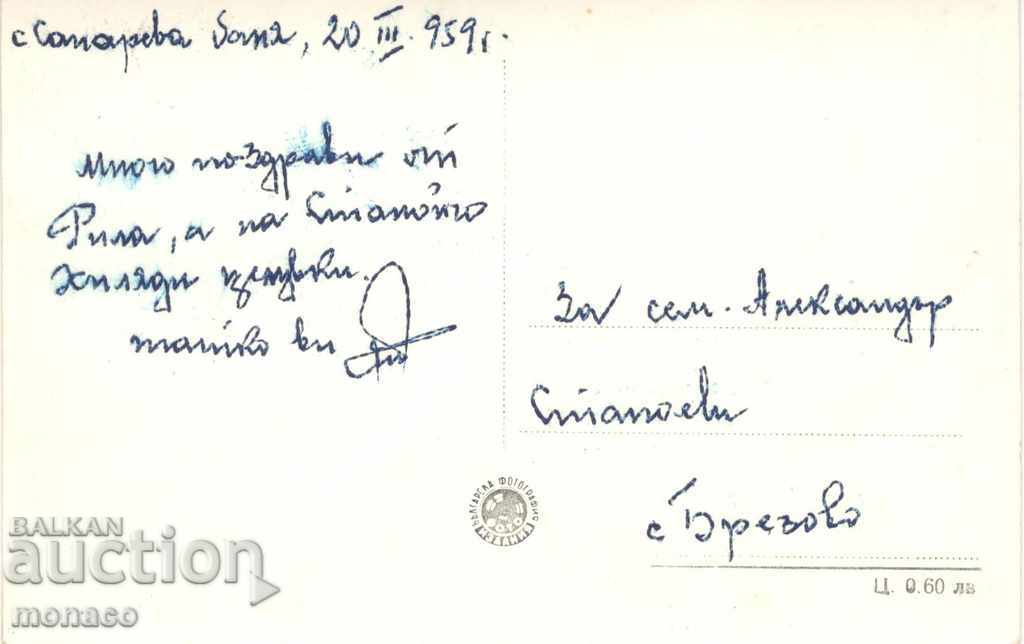 с Сапарева баня, 20 III. 959 г.
много поздрави от
Рила, а на Станойчо
хиляди целувки.
татко ви
За сем. Александър
Станоеви
с Брезово
БЪЛГАРСКА ФОТОГРАФИЯ
Ц. 0.60 лв
BALKAN
auction
monaco